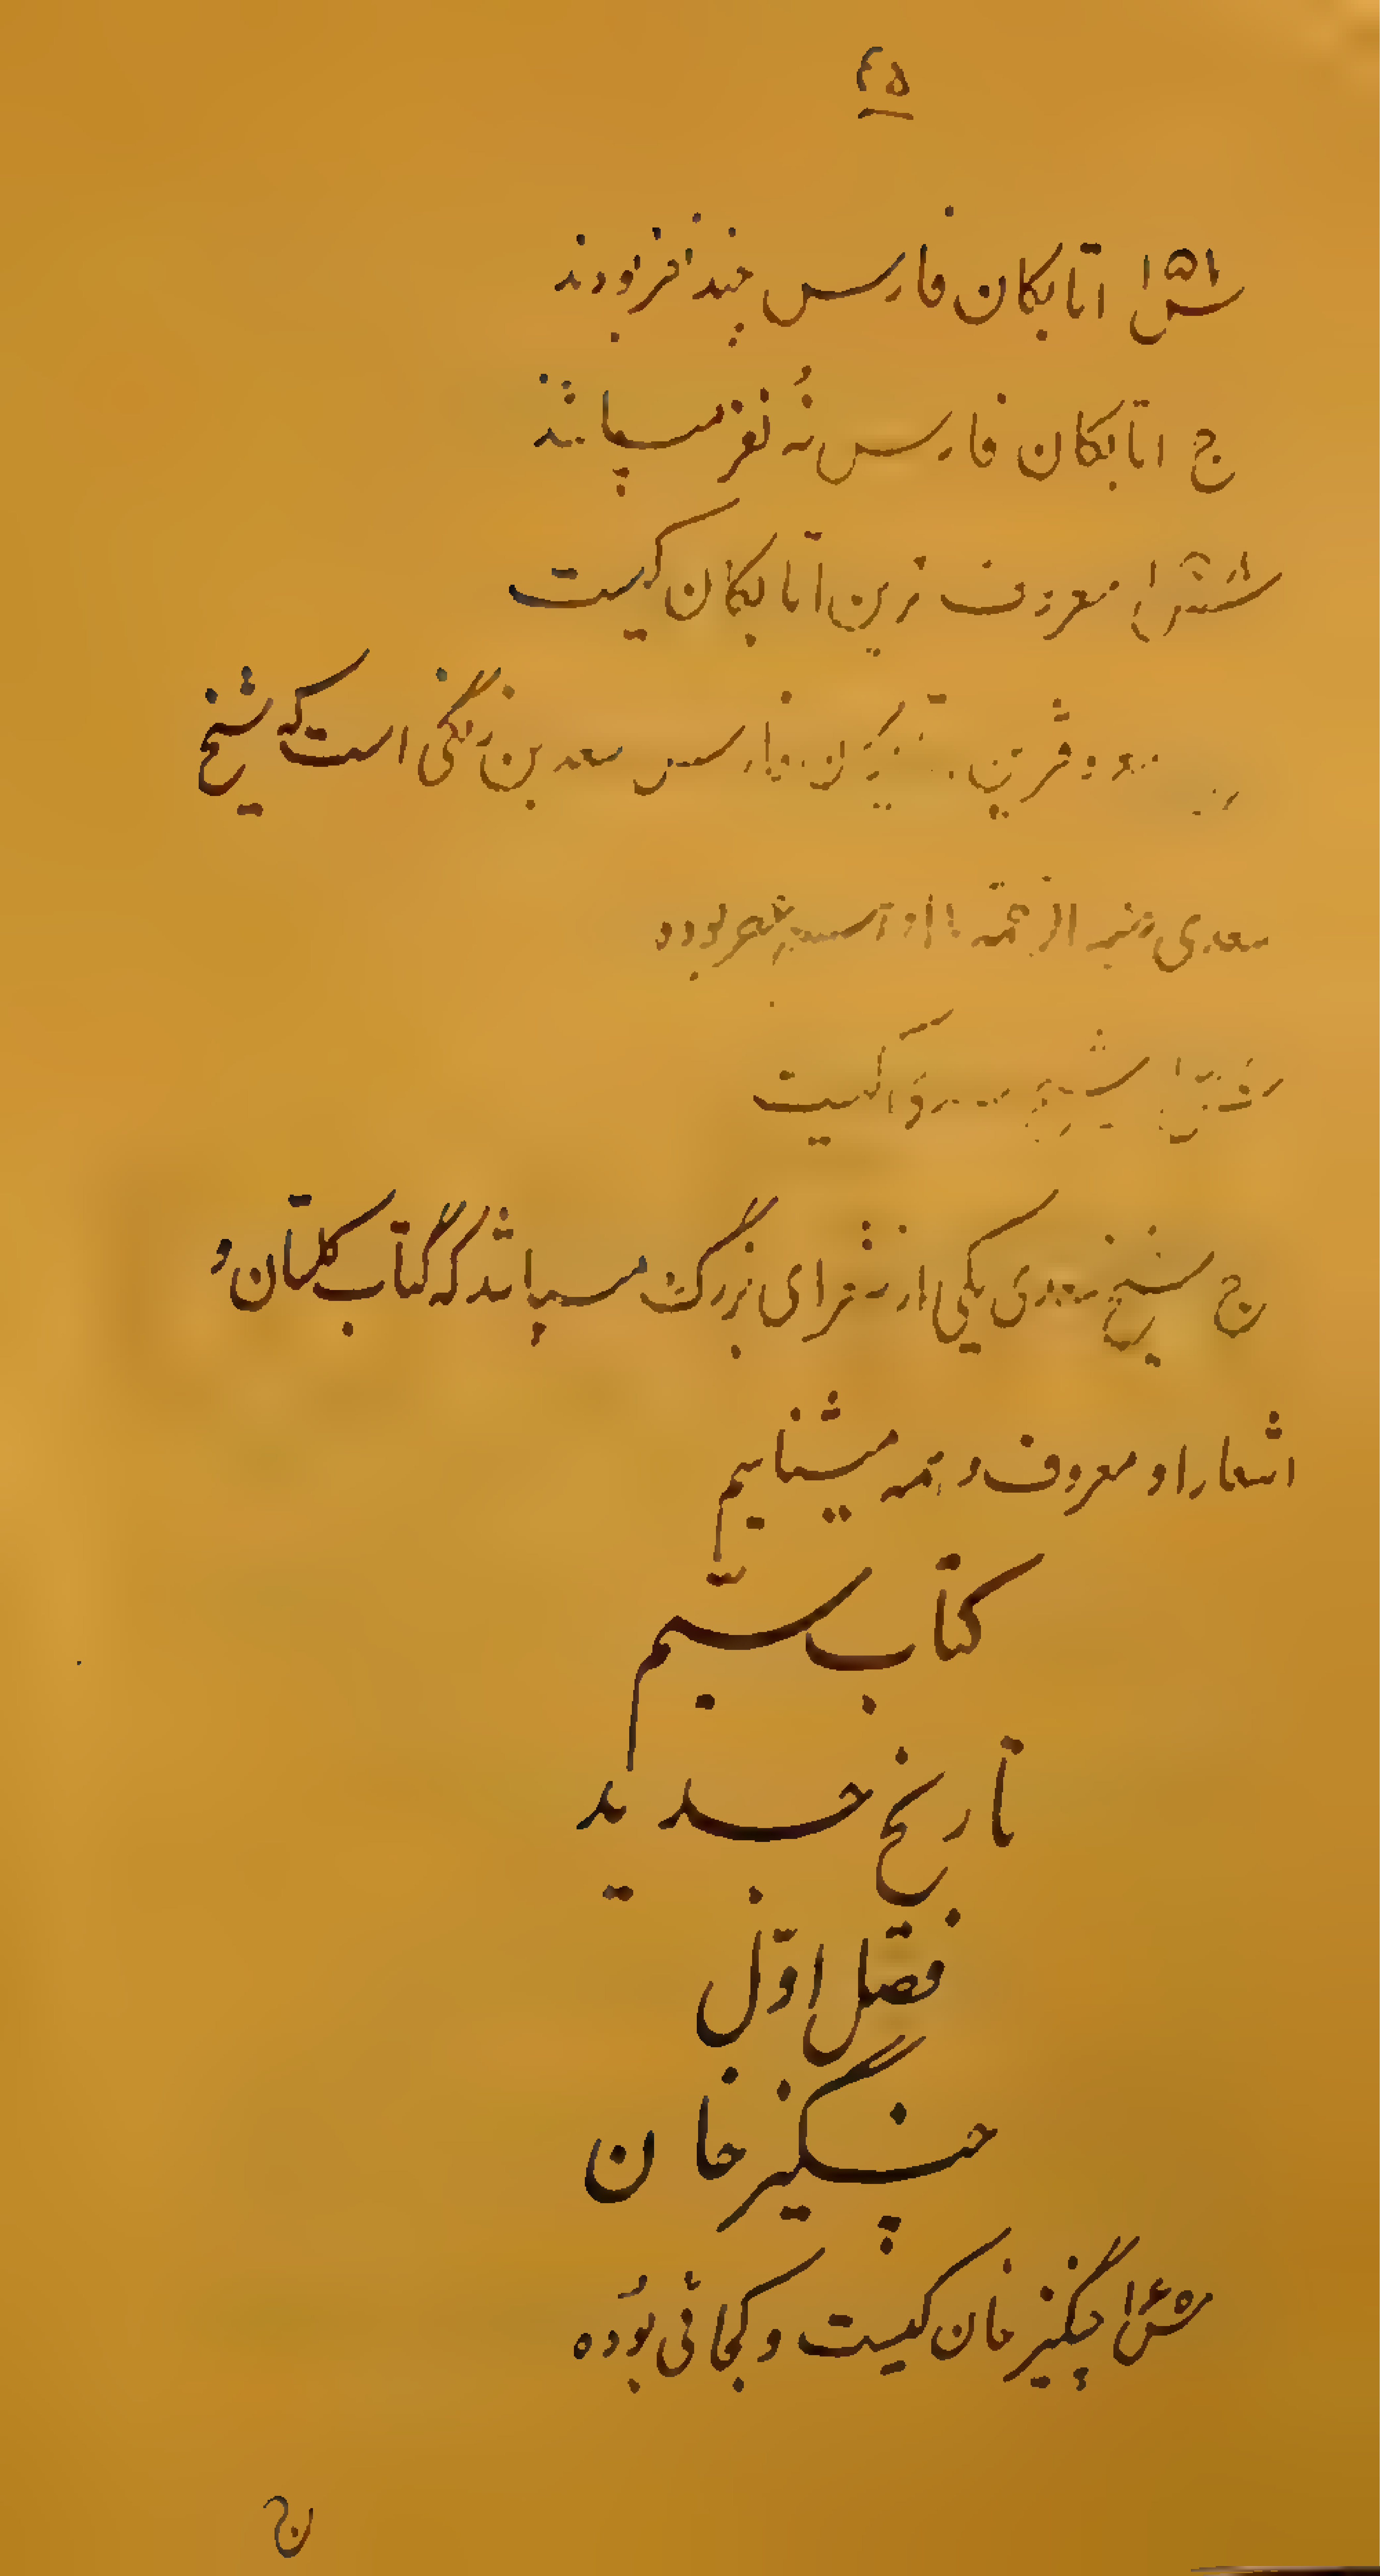 ۴۵
س۱۵۱ اتابکان فارس چند نفر بودند
ج اتابکان فارس نُه نفر میباشند
س معروف ترین اتابکان کیست
معروفترین فارس سعد بن زنگی است که شیخ
سعدی علیه الرحمه با او بوده
شیخ کیست
ج شیخ سعدی یکی از شعرای بزرگ میباشد که کتاب گلستان و
اشعار او معروف و همه میشناسیم
کتاب سیّم
تاریخ جدید
فصل اوّل
چنگیز خان
س چنگیز خان کیست و کجائی بوده
ج